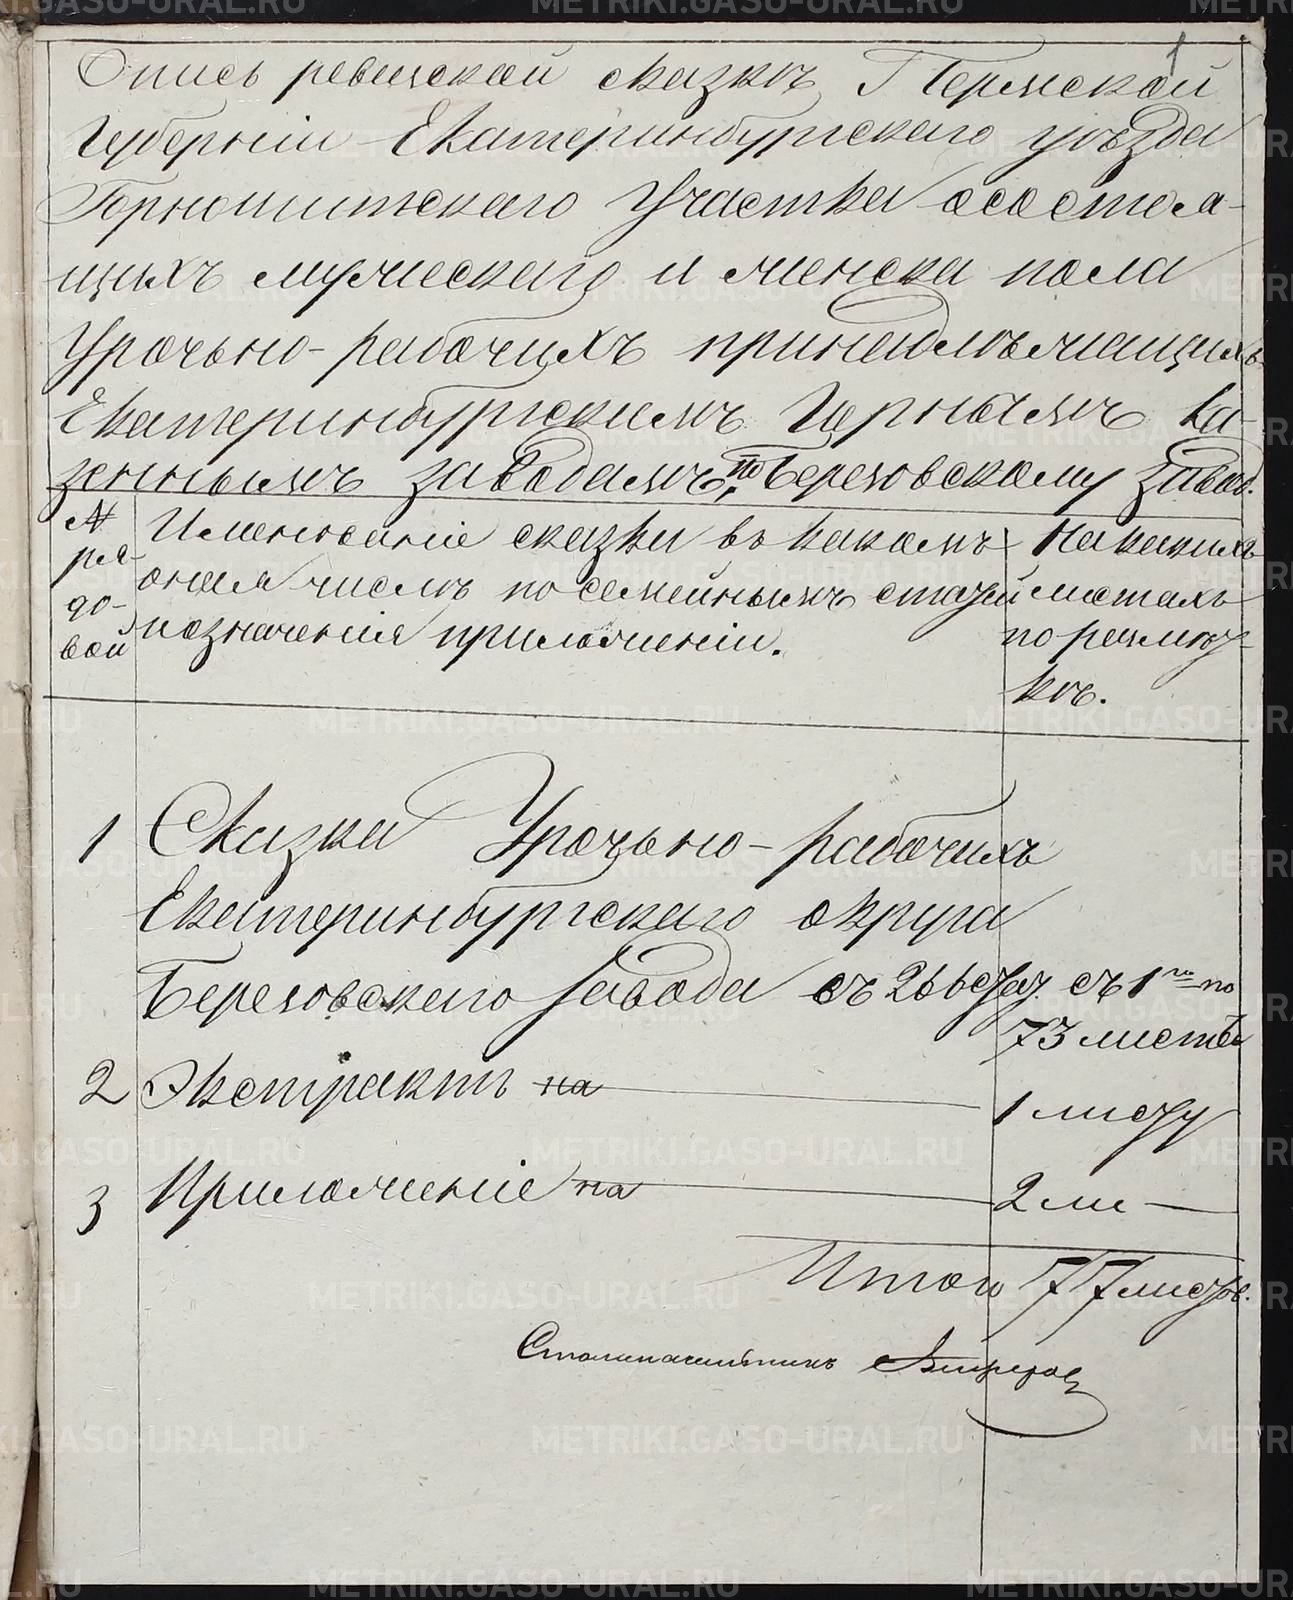 1
Опись ревизской сказкѣ, Пермской
Губерніи Екатеринбургскаго уѣзда
Горнощитскаго Участка о состоя-
щихъ мужескаго и женска пола
Урочьно-рабочихъ принадлѣжащихъ
Екатеринбургскимъ Горнымъ ка-
зеннымъ заводамъ, по Березовскому завод.
№ ря-до-вой
Именованіе сказки въ какомъ
оная числѣ по семейнымъ статей
и означенія приложеніи.
На какихъ
листахъ
по разметкѣ.
1 Сказка Урочьно-рабочихъ
Екатеринбургскаго округа
Березовскаго Завода съ 266 стат. съ 1го по
73 листъ
2 Экстрактъ на 1 листу
3 Приложеніе на 2 ли —
Итого 77 листов.